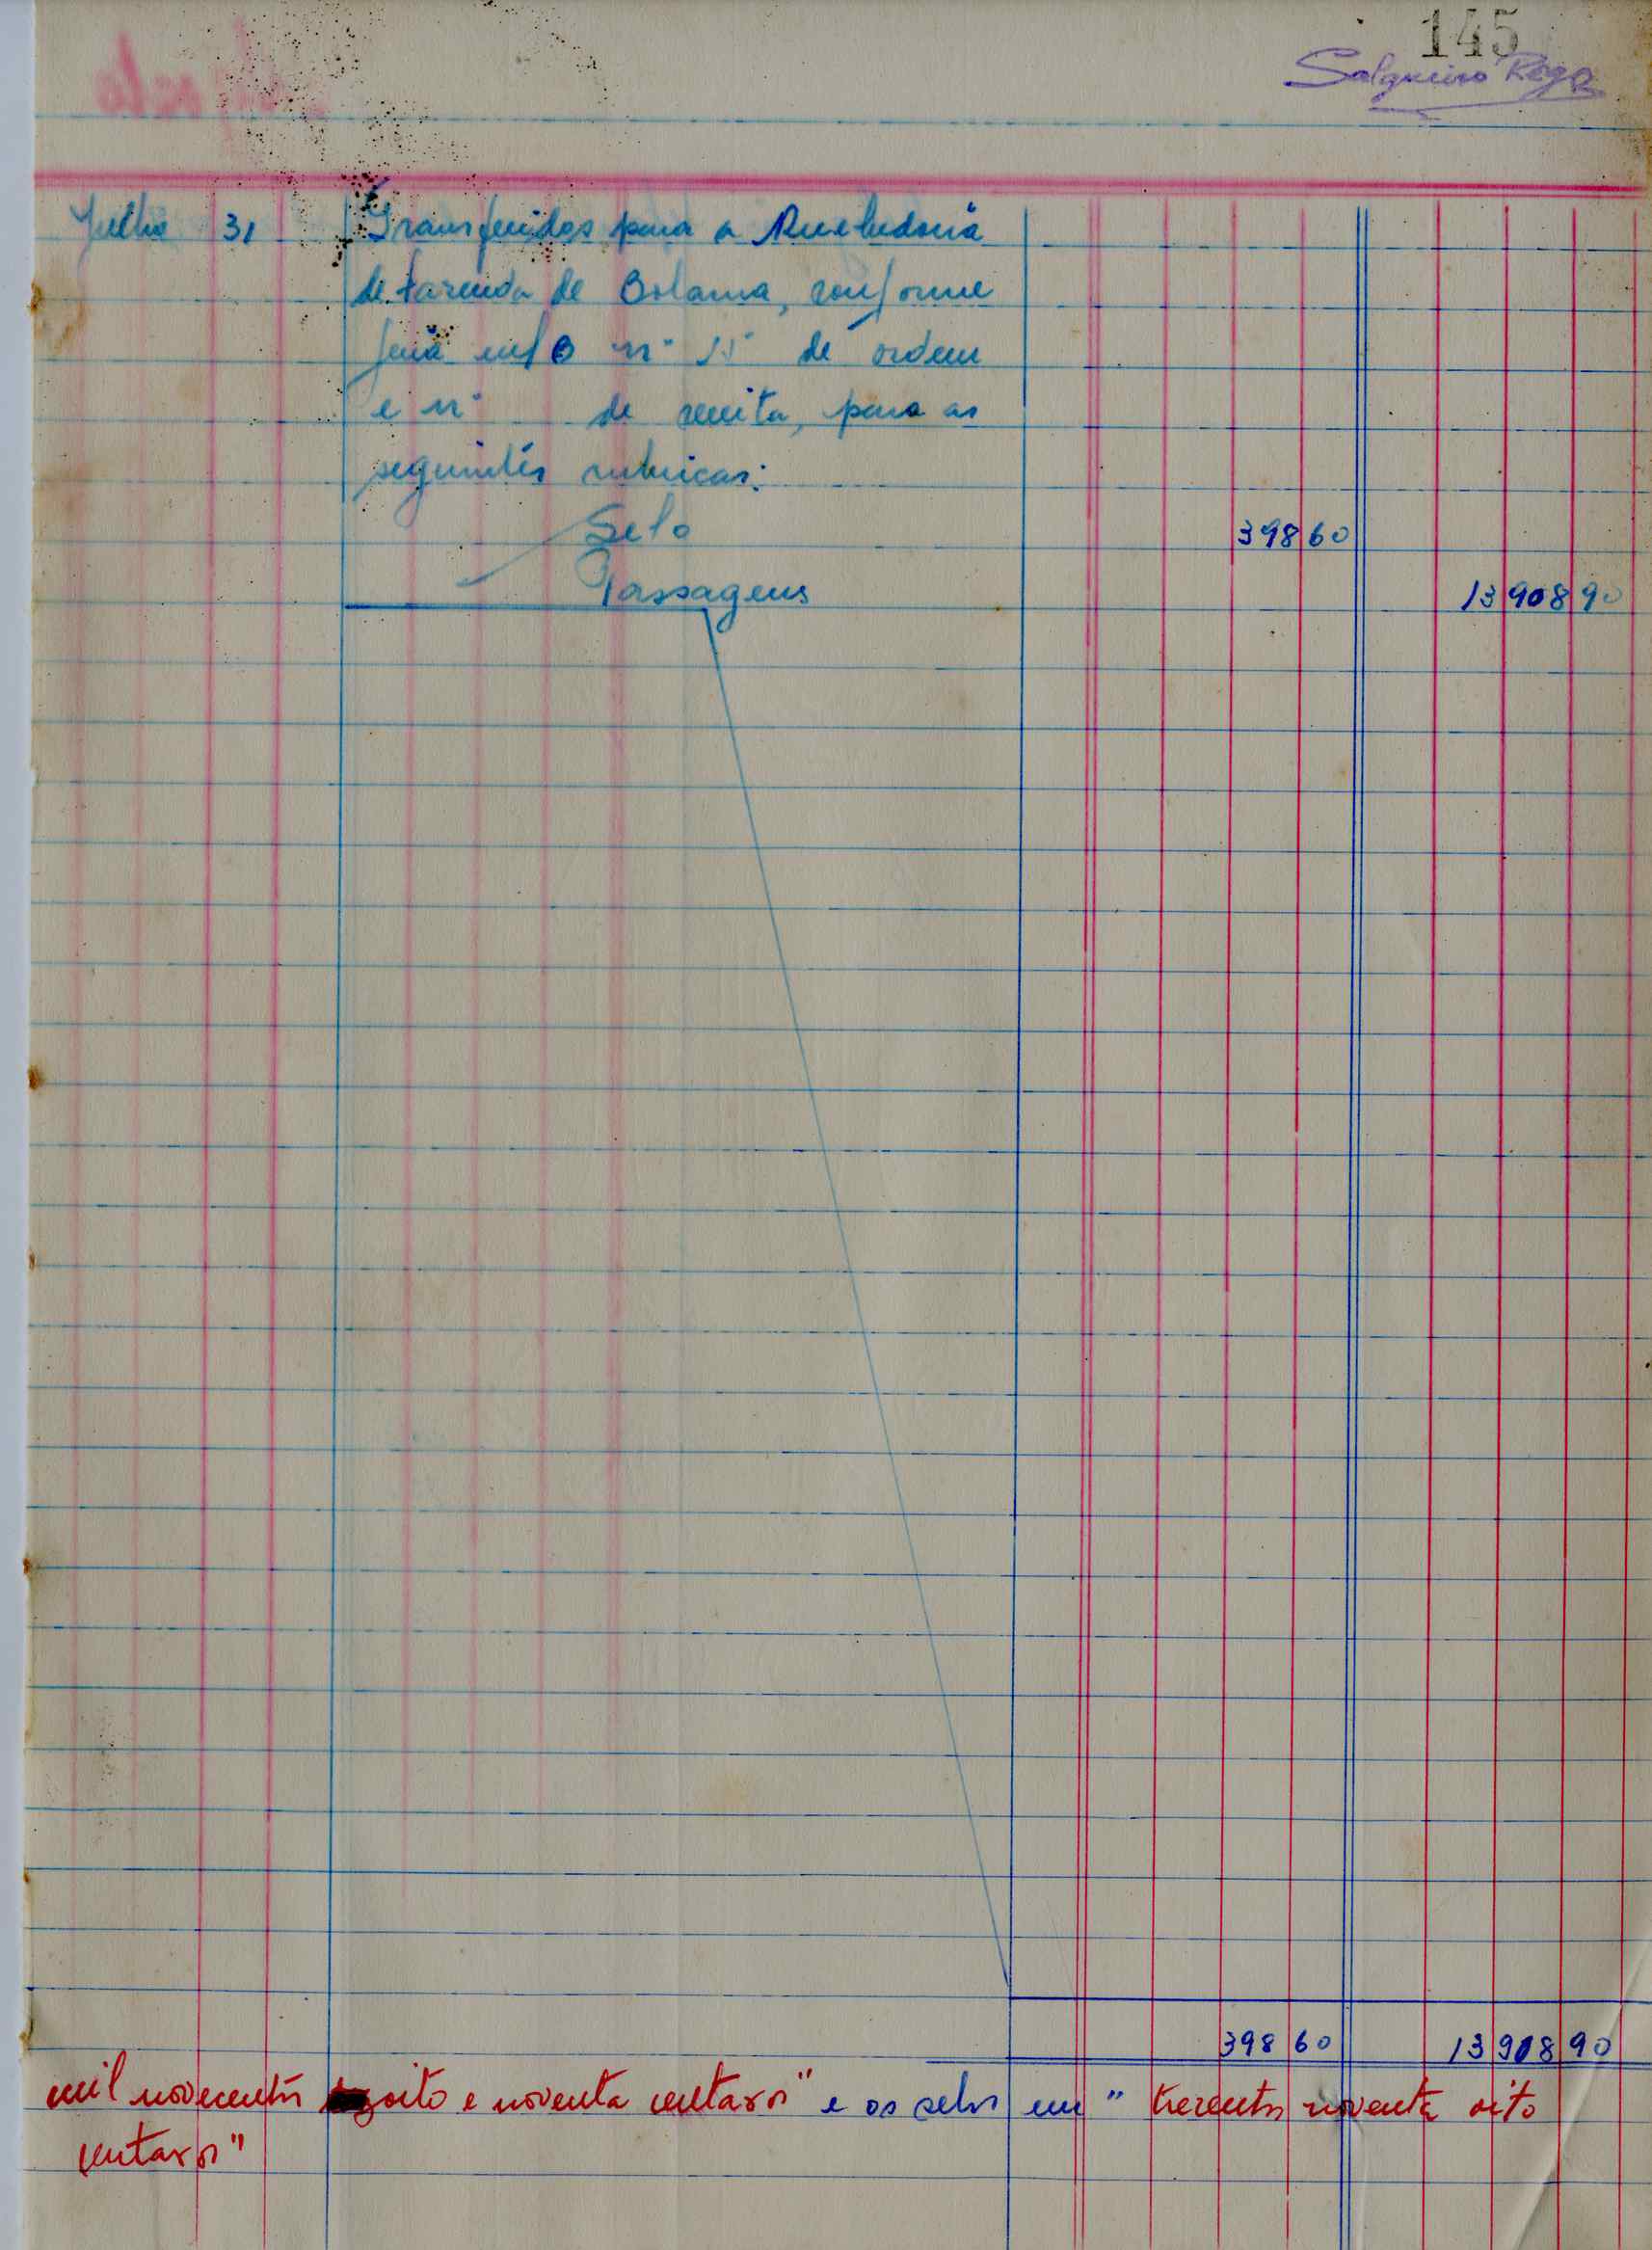 145
Salgueiro Rego
Julho 31 Transferidos para a Recebedoria
de Fazenda de Bolama, conforme
guia m/B nº 15 de ordem
e nº de receita, para as
seguintes rubricas:
Selo 398 60
Passagens 13 908 90
398 60 13 908 90
mil novecentos oito e noventa centavos" e os selos em "trezentos noventa oito
centavos"